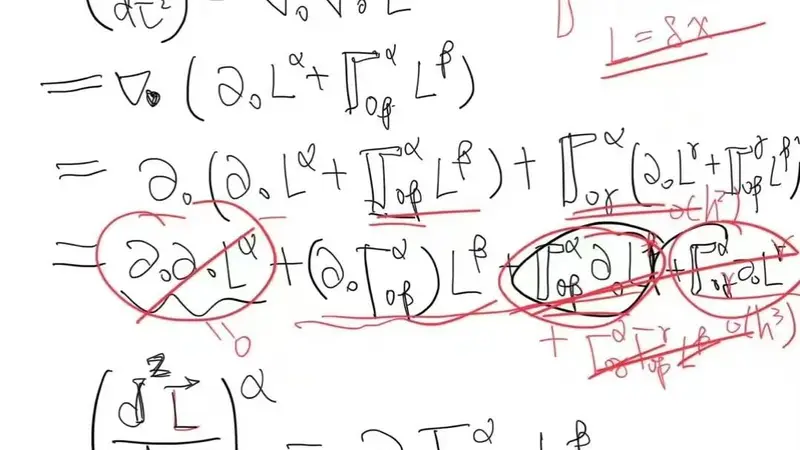 (dτ²) = ∇₀∇₀L
L = δx
= ∇₀(∂₀L^α + Γ^α_{0β} L^β)
= ∂₀(∂₀L^α + Γ^α_{0β} L^β) + Γ^α_{0γ}(∂₀L^γ + Γ^γ_{0β} L^β)
o(h²)
= ∂₀∂₀L^α + (∂₀Γ^α_{0β})L^β + Γ^α_{0β}∂₀L + Γ^α_{0γ}∂₀L^γ
= 0
+ Γ^α_{0γ}Γ^γ_{0β}L^β o(h³)
(d²L⃗)^α = ∂Γ^α L^β